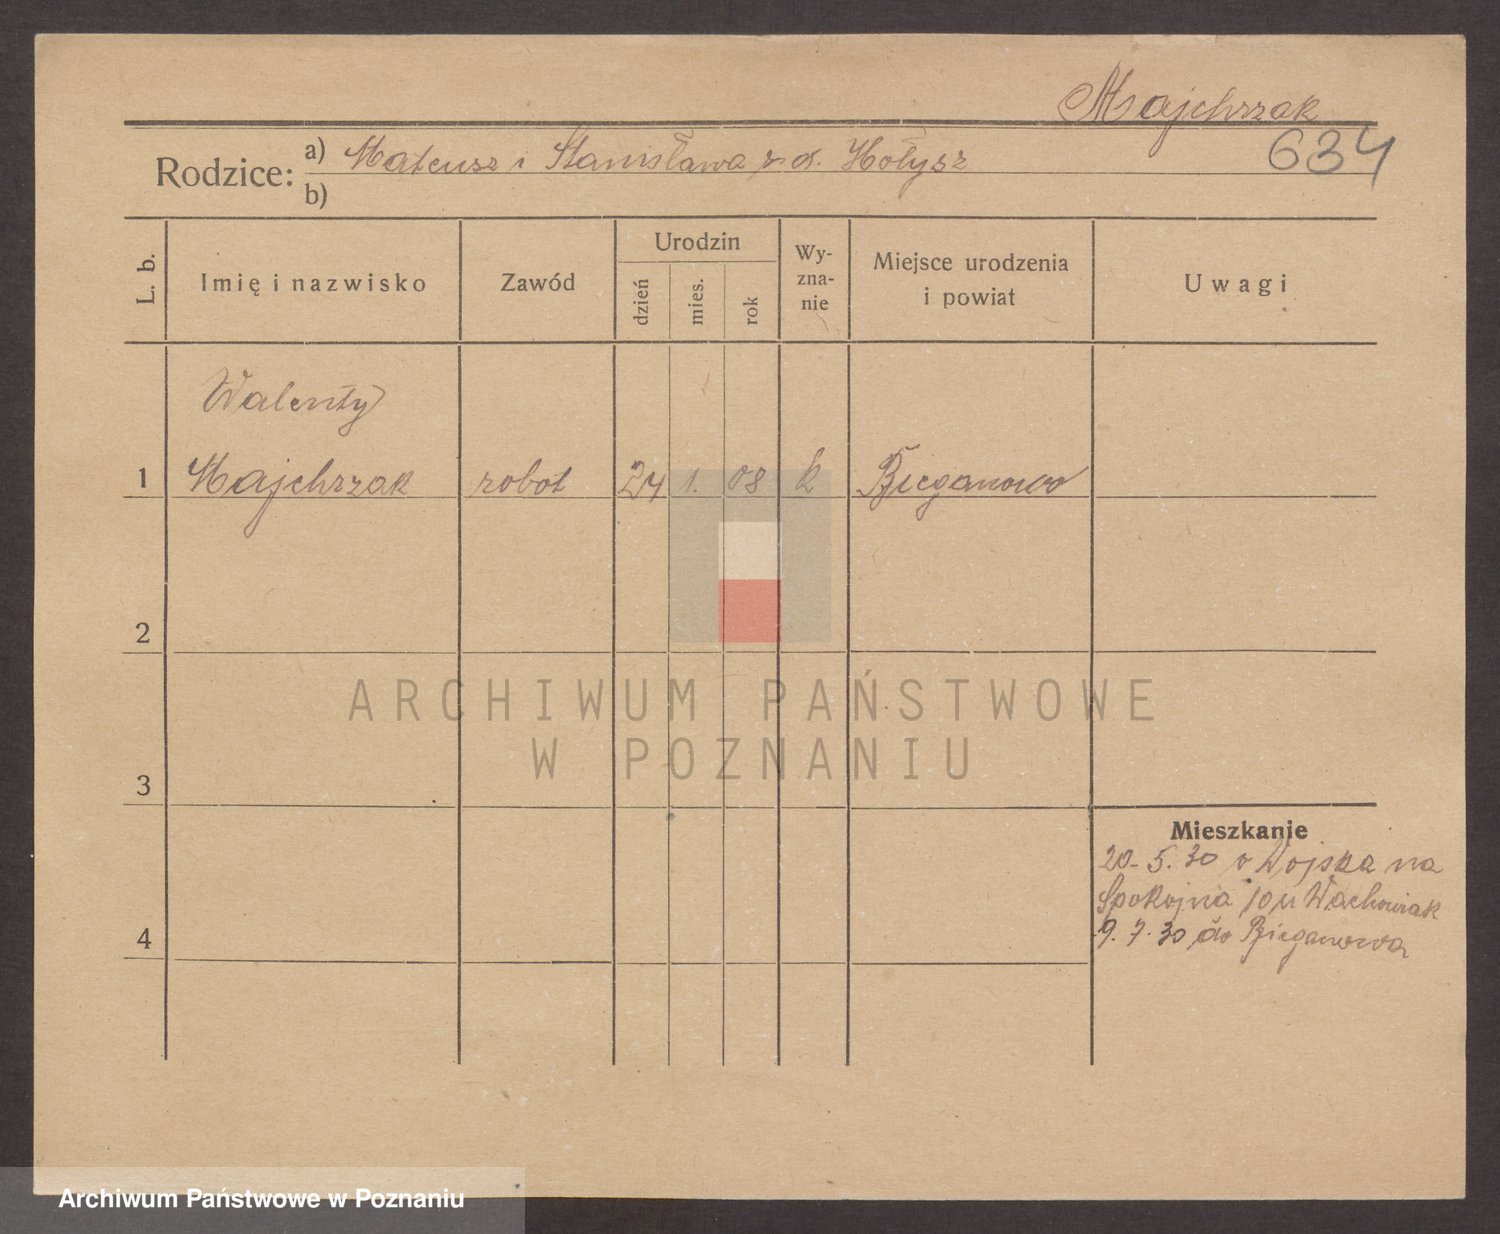 Majchrzak
634
Rodzice: a) Mateusz i Stanisława z d. Hołysz
b)
L. b.
Imię i nazwisko
Zawód
Urodzin
dzień
mies.
rok
Wy-
zna-
nie
Miejsce urodzenia
i powiat
Uwagi
Walenty
1 Majchrzak robot 24 1. 08 k Bieganowo
2
3
4
Mieszkanie
20.5.30 Wojska na
Spokojna 10 u Wachowiak
9.7.30 do Bieganowa
ARCHIWUM PAŃSTWOWE
W POZNANIU
Archiwum Państwowe w Poznaniu